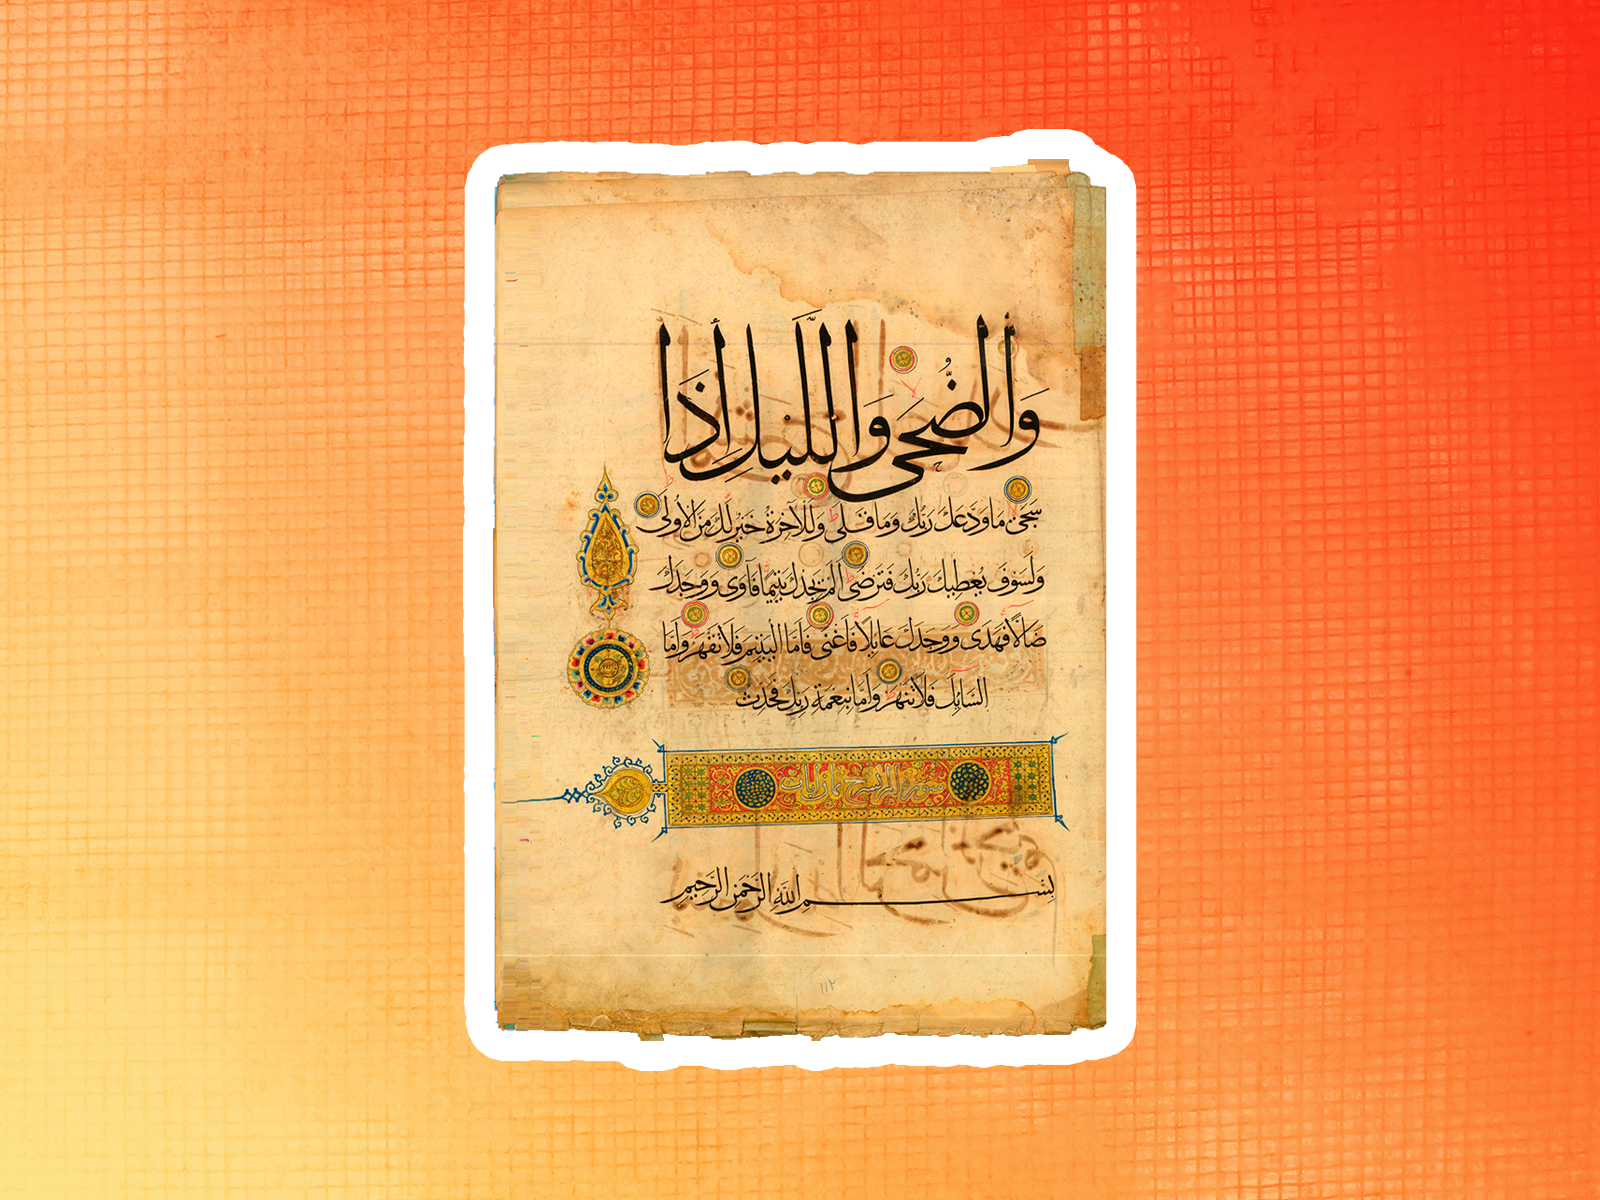 وَالضُّحَى وَاللَّيْلِ إِذَا
سَجَى مَا وَدَّعَكَ رَبُّكَ وَمَا قَلَى وَلَلْآخِرَةُ خَيْرٌ لَكَ مِنَ الْأُولَى
وَلَسَوْفَ يُعْطِيكَ رَبُّكَ فَتَرْضَى أَلَمْ يَجِدْكَ يَتِيمًا فَآوَى وَوَجَدَكَ
ضَالًّا فَهَدَى وَوَجَدَكَ عَايِلًا فَأَغْنَى فَأَمَّا الْيَتِيمَ فَلَا تَقْهَرْ وَأَمَّا
السَّايِلَ فَلَا تَنْهَرْ وَأَمَّا بِنِعْمَةِ رَبِّكَ فَحَدِّثْ
سورة الم نشرح ثمان ايات
بِسْمِ اللَّهِ الرَّحْمَنِ الرَّحِيمِ
١١٢